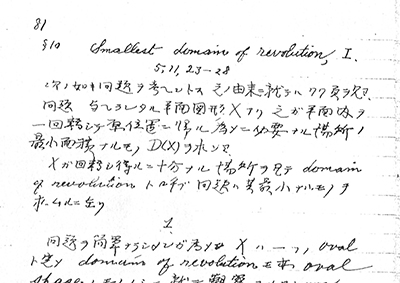 81
§10 Smallest domain of revolution, I.
5; 11, 23-28
次ノ如キ問題ヲ考ヘントス 其ノ由来ニ就テハ 77頁ヲ見ヨ
問題 与ヘラレタル平面図形 X アリ 之ガ平面内ヲ
一回転シテ原位置ニ帰ル為メニ必要ナル場所ノ
最小面積ナルモノ D(X) ヲ求ム
X ガ回転シ得ルニ十分ナル場所ヲ domain
of revolution ト ナヅ 問題ハ其最小ナルモノヲ
求ムルニ在リ
1.
問題ヲ簡単ナラシメンガ為メ X ハ一ツノ oval
トシ domain of revolution モ亦 oval